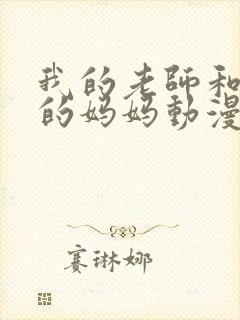 我的老師和
的妈妈動漫
赛琳娜